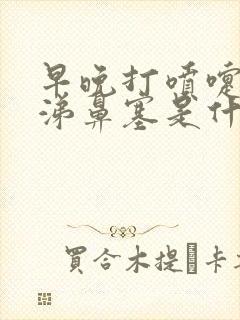 早晚打噴嚏
涕鼻塞是什
買合木提 卡